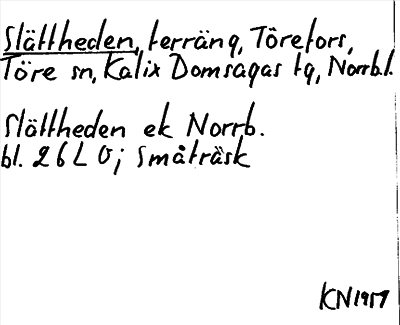 Slättheden, terräng, Törefors,
Töre sn, Kalix Domsagas tg, Norrb.l.
Slättheden ek Norrb.
bl. 26 L 0 j Småträsk
KN 1957